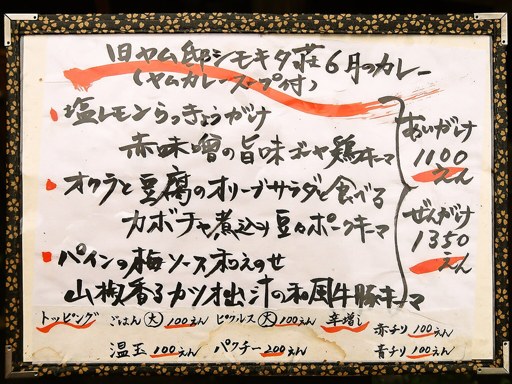 旧ヤム邸シモキタ荘6月のカレー
(ヤムカレースープ付)
塩レモンらっきょうがけ
赤味噌の旨味ゴーヤ鶏キーマ
オクラと豆腐のオリーブサラダと食べる
カボチャ煮込み豆々ポークキーマ
パインの梅ソース和えのせ
山椒香るカツオ出汁の和風牛豚キーマ
あいがけ
1100
えん
ぜんがけ
1350
えん
トッピング ごはん(大)100えん ピクルス(大)100えん 辛増し
赤チリ100えん
温玉100えん パクチー200えん 青チリ100えん